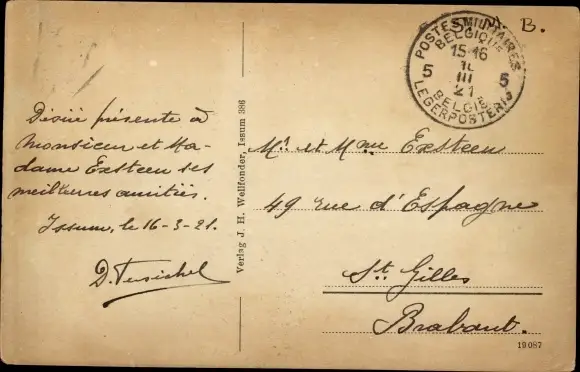 S.M. B.
POSTES MILITAIRES
BELGIQUE
15-16
III
21
5 5
BELGIË
LEGERPOSTERIJ
Désiré présente à
Monsieur et Ma-
dame Exsteen ses
meilleures amitiés.
Issum, le 16-3-21.
D.
Verlag J. H. Wellfonder, Issum 386
Mr. et Mme Exsteen
49 rue d'Espagne
St. Gilles
Brabant.
19087